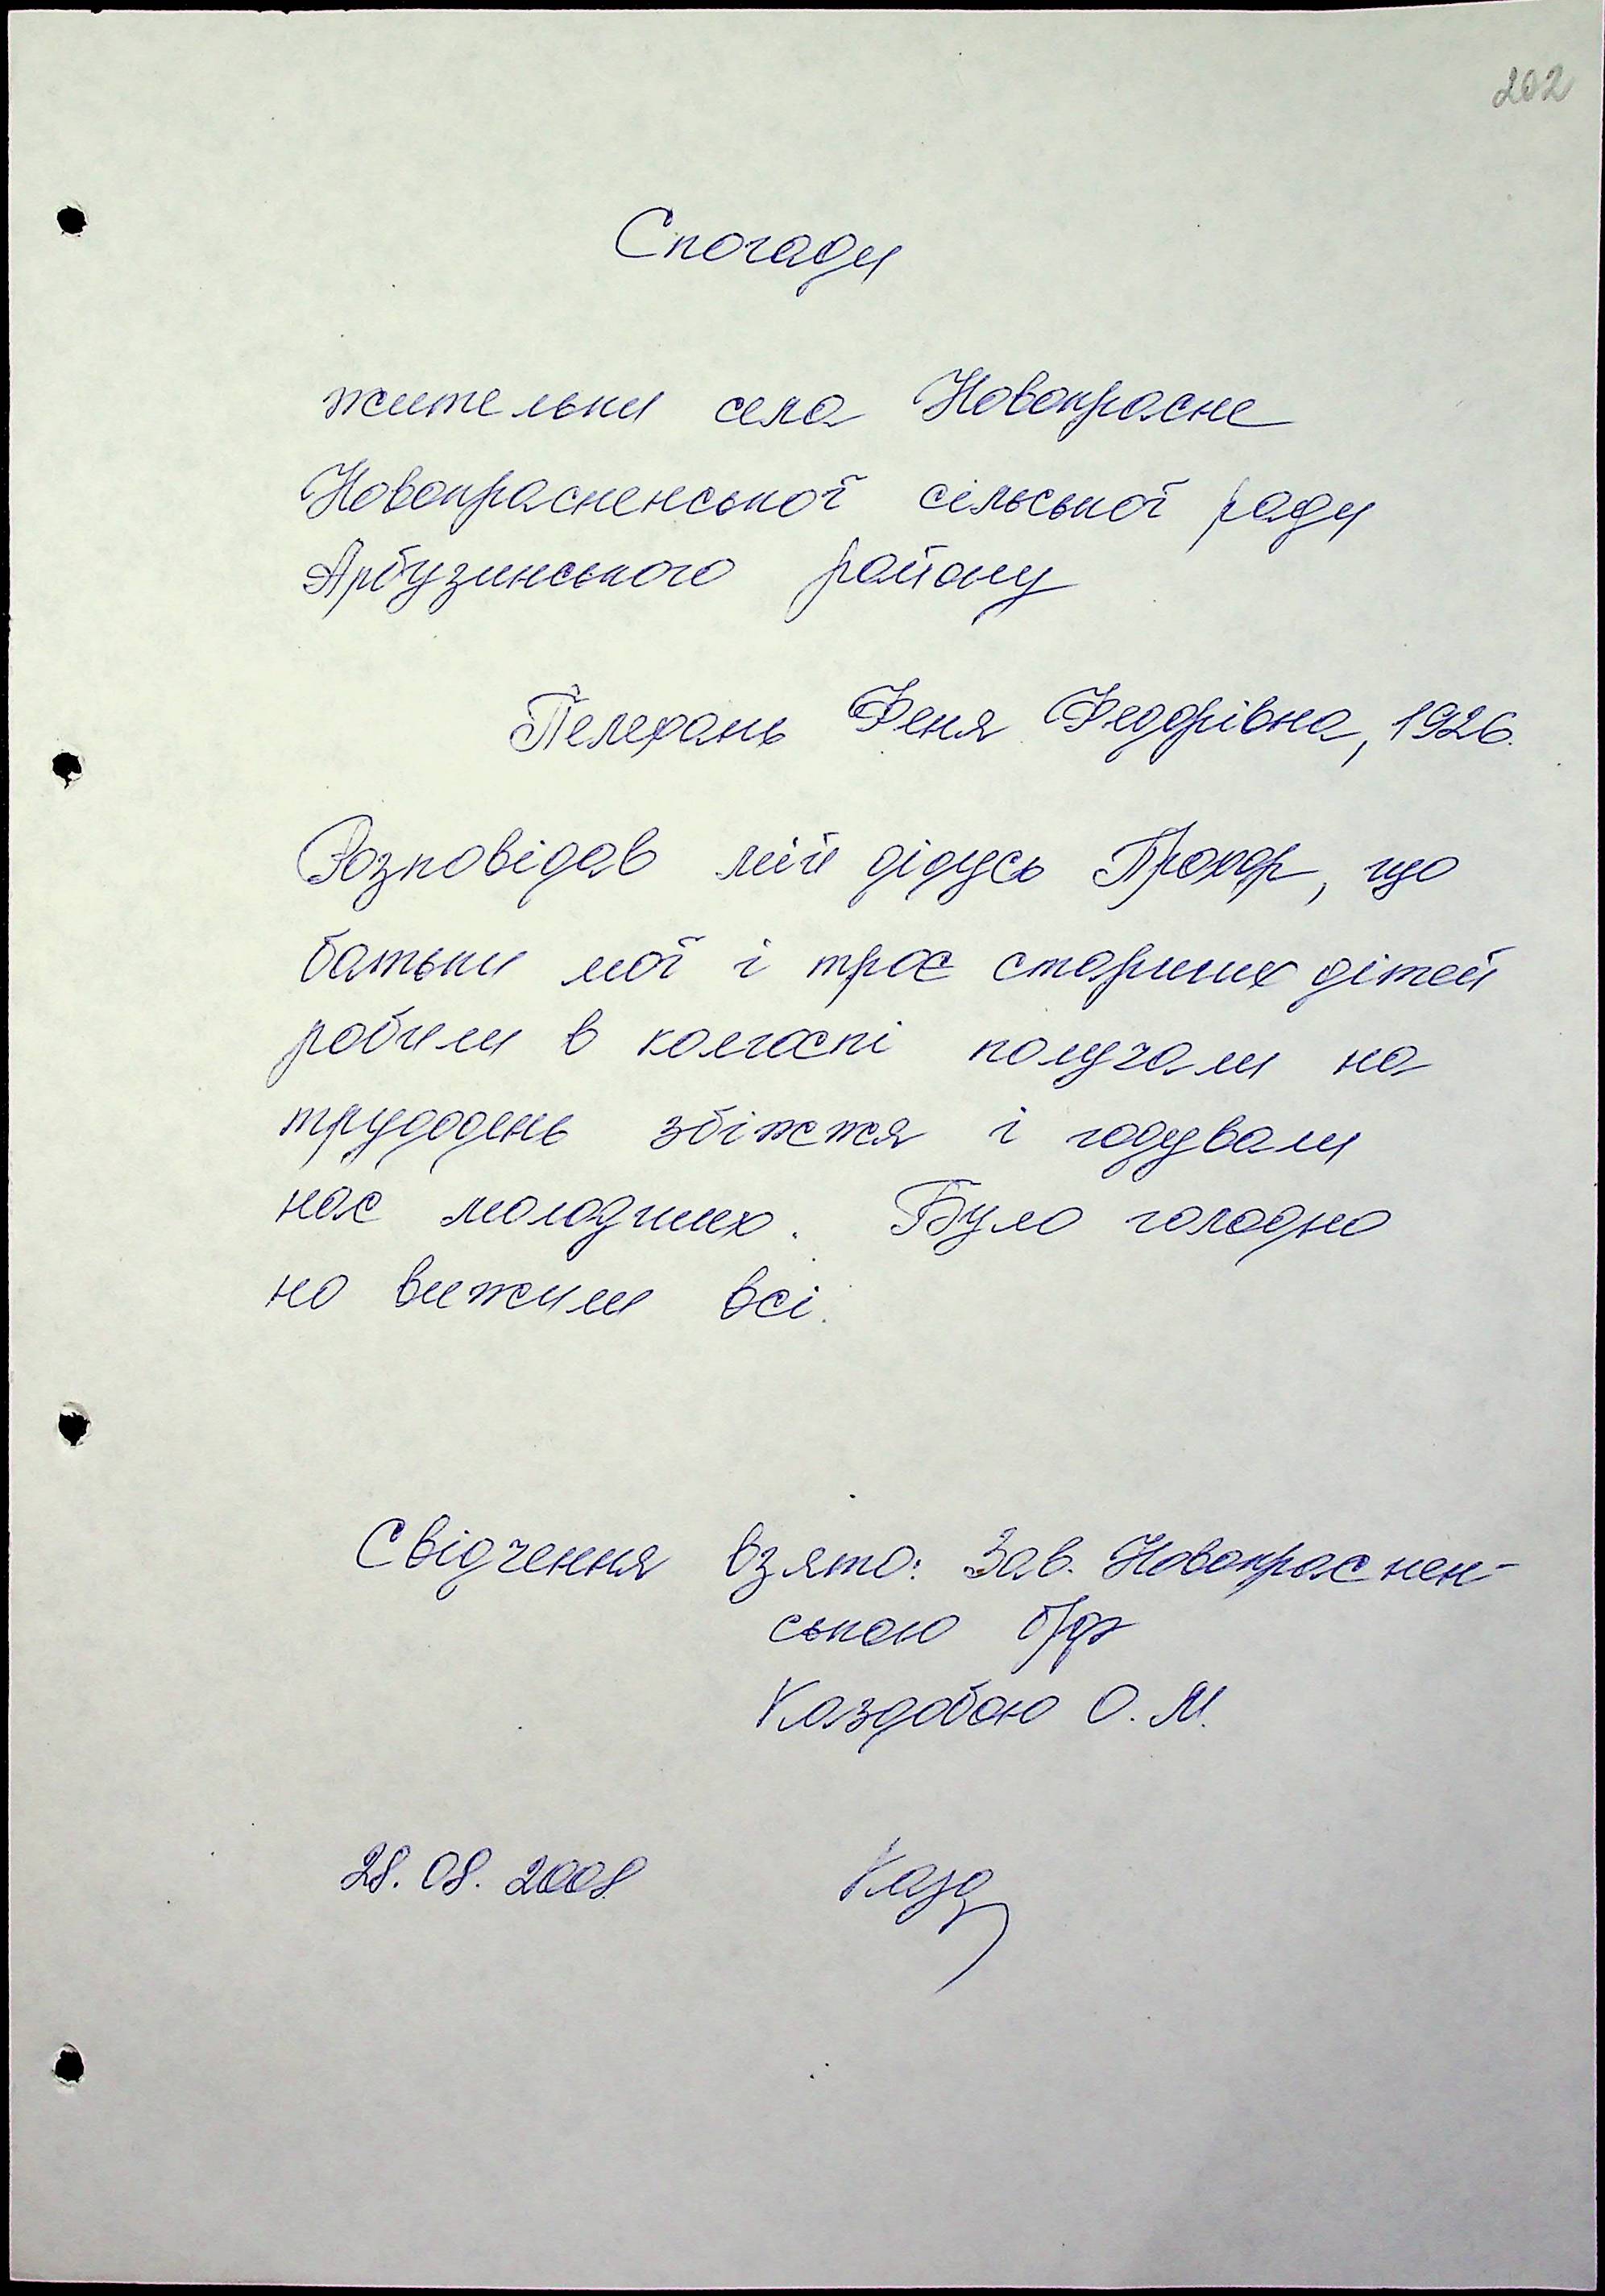 202
Спогади
жительки села Новокрасне
Новокрасненської сільської ради
Арбузинського району
Пелехань Феня Федорівна, 1926.
Розповідав мій дідусь Прохор, що
батьки мої і троє старших дітей
робили в колгоспі получали на
трудодень збіжжя і годували
нас молодших. Було голодно
но вижили всі.
Свідчення взято: Зав. Новокраснен-
ською б/ф
Каздобою О. М.
28. 08. 2008
Казд